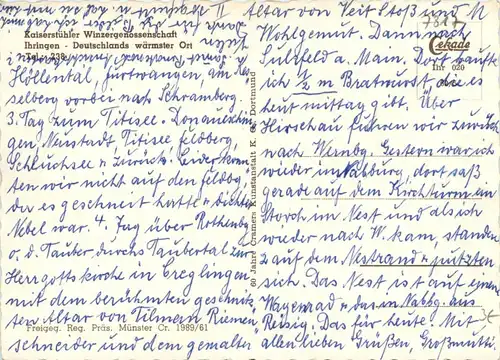 Kaiserstühler Winzergenossenschaft
Ihringen - Deutschlands wärmster Ort
Tel. 238
Höllental, Furtwangen am
selberg vorbei nach Schramberg.
3. Tag zum Titisee. Donaueschin-
gen, Neustadt, Titisee, Feldberg,
Schluchsee u. zurück. Leider konn-
ten wir nicht auf den Feldbg,
da es geschneit hatte u. dichter
Nebel war. 4. Tag über Rothenbg
o. d. Tauber durchs Taubertal zur
Herrgottskirche in Creglingen
mit dem berühmten geschnitz-
ten Altar von Tilman Riemen-
schneider und dem gemalten
Freigeg. Reg. Präs. Münster Cr. 1989/61
60 Jahre Cramers Kunstanstalt K. G., Dortmund
Cekade
Ihr 020
Altar von Veit Stoß und M
Wohlgemut. Dann nach
Sulzfeld a. Main. Dort kauften
ich 1/2 m Bratwurst die es
heut mittag gibt. Über
Hirschau fuhren wir zurück
nach Weinbg. Gestern war ich
wieder in Nabburg, dort saß
gerade auf dem Kirchturm ein
Storch im Nest und als ich
wieder nach W. kam, standen
auf dem Nestrand u. putzten
sich. Das Nest ist auf einem
Wagenrad u. das in Nabbg. aus
Reisig. Das für heute! Mit
allen lieben Grüßen, Großmutti